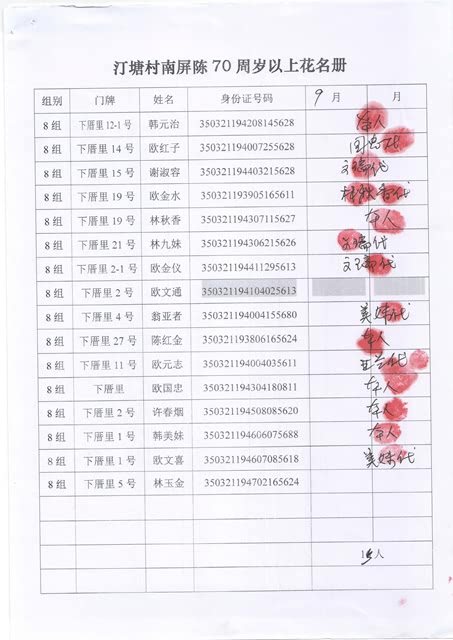 汀塘村南屏陈 70 周岁以上花名册
组别 门牌 姓名 身份证号码 9 月 月
8 组 下厝里 12-1 号 韩元治 350321194208145628 本人
8 组 下厝里 14 号 欧红子 350321194007255628 代
8 组 下厝里 15 号 谢淑容 350321194403215628 代
8 组 下厝里 19 号 欧金水 350321193905165611 林秋香代
8 组 下厝里 19 号 林秋香 350321194307115627 本人
8 组 下厝里 21 号 林九妹 350321194306215626 代
8 组 下厝里 2-1 号 欧金仪 350321194411295613 代
8 组 下厝里 2 号 欧文通 350321194104025613
8 组 下厝里 4 号 翁亚者 350321194004155680 美妹代
8 组 下厝里 27 号 陈红金 350321193806165624 本人
8 组 下厝里 11 号 欧元志 350321194004035611 代
8 组 下厝里 欧国忠 350321194304180811 本人
8 组 下厝里 2 号 许春烟 350321194508085620 本人
8 组 下厝里 1 号 韩美妹 350321194606075688 本人
8 组 下厝里 1 号 欧文喜 350321194607085618 美妹代
8 组 下厝里 5 号 林玉金 350321194702165624
15人